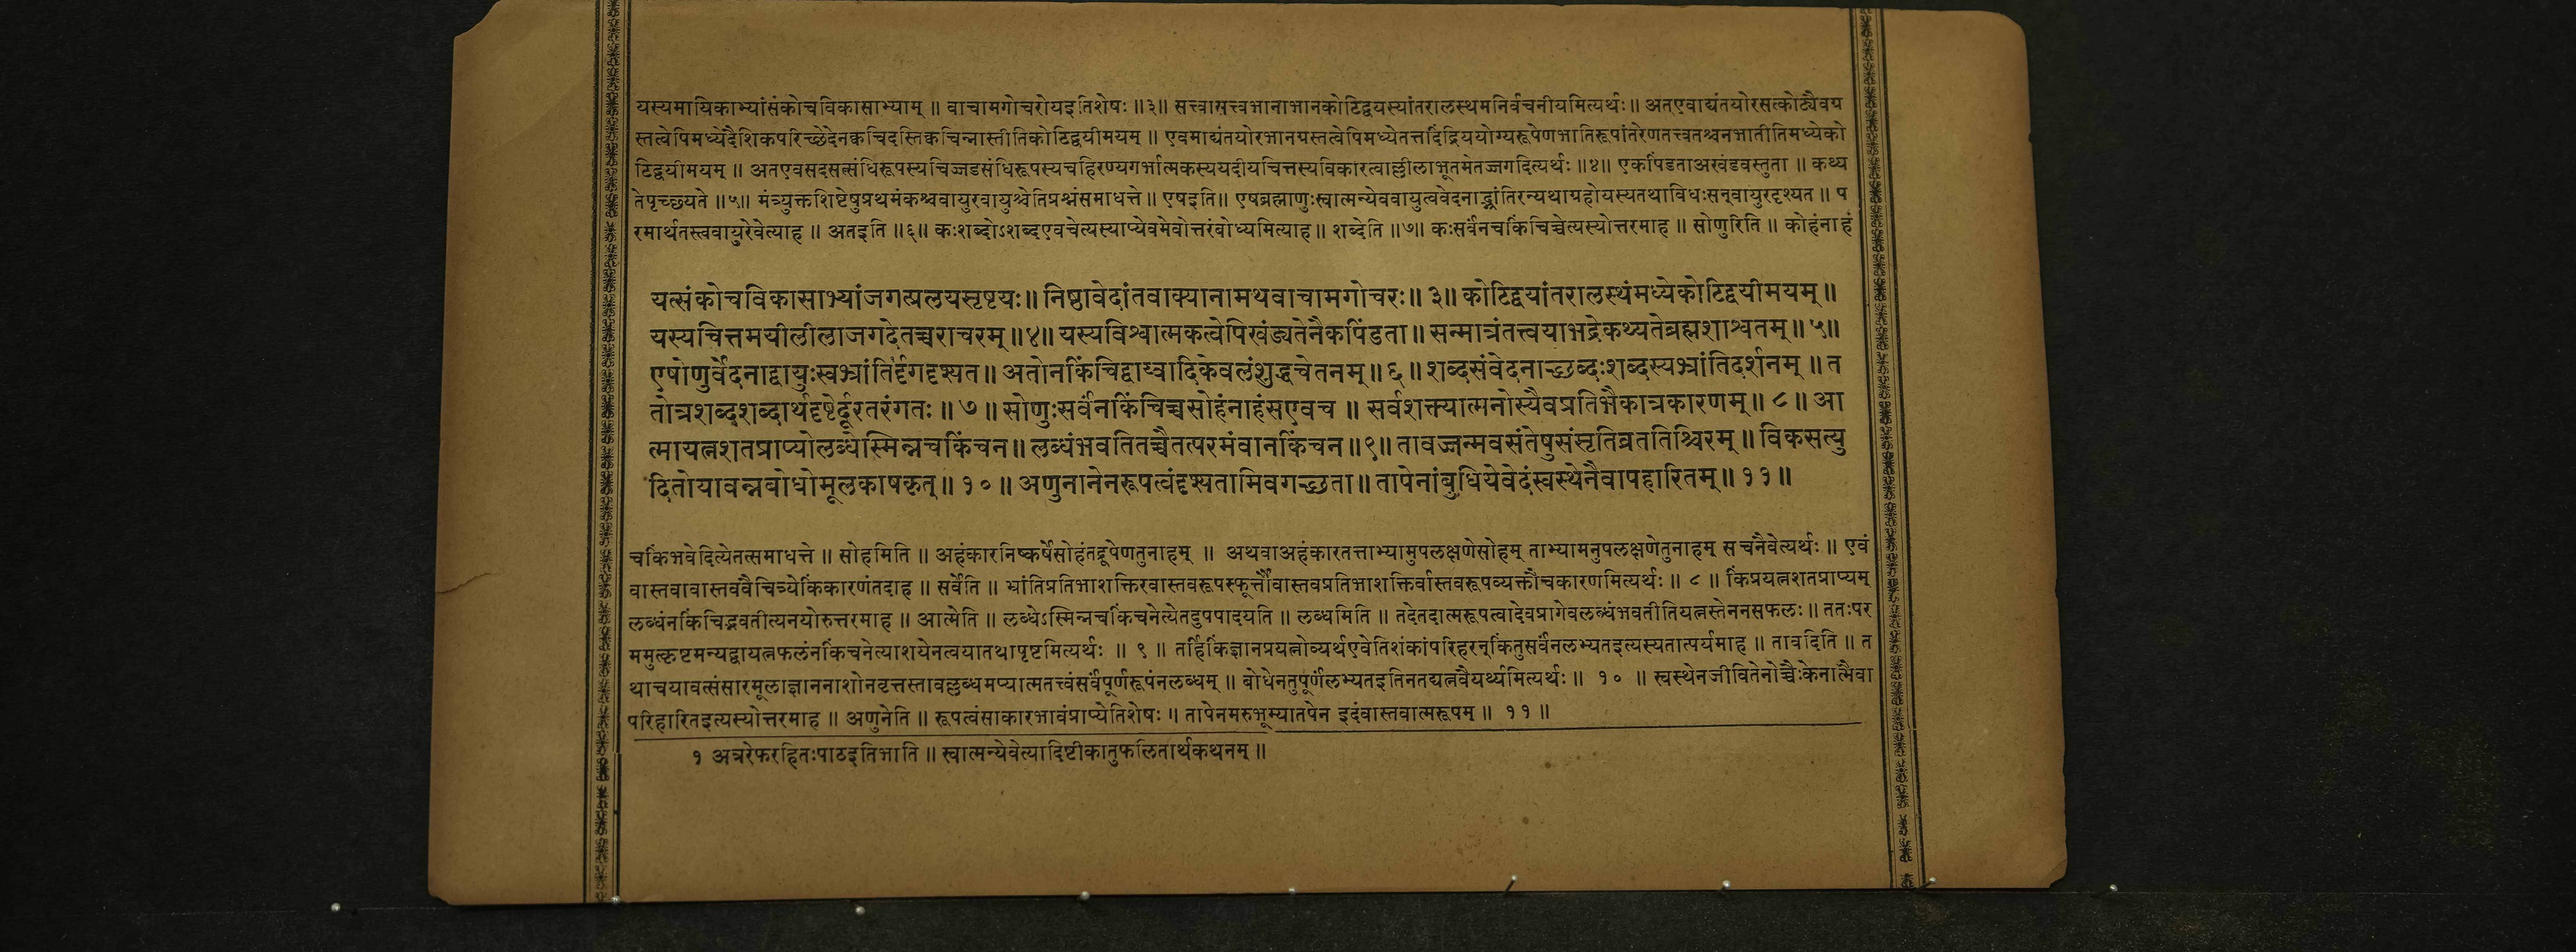 यस्यमायिकाभ्यांसंकोचविकासाभ्याम् ॥ वाचामगोचरोयइतिशेषः ॥३॥ सत्त्वासत्त्वभानाभानकोटिद्वयस्यांतरालस्थमनिर्वचनीयमित्यर्थः॥ अतएवाद्यंतयोरसत्कोट्यैवय
स्तत्वेपिमध्येदैशिकपरिच्छेदेनक्वचिदस्तिक्वचिन्नास्तीतिकोटिद्वयीमयम् ॥ एवमाद्यंतयोरभानयस्तत्वेपिमध्येतत्तदिंद्रिययोग्यरूपेणभातिरूपांतरेणतत्त्वतश्चनभातीतिमध्येको
टिद्वयीमयम् ॥ अतएवसदसत्संधिरूपस्यचिज्जडसंधिरूपस्यचहिरण्यगर्भात्मकस्ययदीयचित्तस्यविकारत्वाल्लीलाभूतमेतज्जगदित्यर्थः ॥४॥ एकपिंडताअखंडवस्तुता ॥ कथ्य
तेपृच्छ्यते ॥५॥ मंत्र्युक्तशिष्टेषुप्रथमंकश्चवायुरवायुश्चेतिप्रश्नंसमाधत्ते॥ एषइति॥ एषब्रह्माणुःस्वात्मन्येववायुत्ववेदनाद्भ्रांतिरन्यथाग्रहोयस्यतथाविधःसन्वायुरदृश्यत ॥ प
रमार्थतस्त्ववायुरेवेत्याह ॥ अतइति ॥६॥ कःशब्दोऽशब्दएवचेत्यस्याप्येवमेवोत्तरंबोध्यमित्याह॥ शब्देति ॥७॥ कःसर्वंनचकिंचिच्चेत्यस्योत्तरमाह ॥ सोणुरिति ॥ कोहंनाहं
यत्संकोचविकासाभ्यांजगत्प्रलयसृष्टयः॥ निष्ठावेदांतवाक्यानामथवाचामगोचरः॥ ३॥ कोटिद्वयांतरालस्थंमध्येकोटिद्वयीमयम्॥
यस्यचित्तमयीलीलाजगदेतच्चराचरम्॥४॥ यस्यविश्वात्मकत्वेपिखंड्यतेनैकपिंडता॥ सन्मात्रंतत्त्वयाभद्रेकथ्यतेब्रह्मशाश्वतम्॥ ५॥
एषोणुर्वेदनाद्वायुःस्वभ्रांतिर्दृग१दृश्यत॥ अतोनकिंचिद्वाय्वादिकेवलंशुद्धचेतनम्॥ ६॥ शब्दसंवेदनाच्छब्दःशब्दस्यभ्रांतिदर्शनम् ॥ त
तोत्रशब्दशब्दार्थदृष्टेर्दूरतरंगतः ॥ ७॥ सोणुःसर्वंनकिंचिच्चसोहंनाहंसएवच ॥ सर्वशक्त्यात्मनोस्यैवप्रतिभैकात्रकारणम्॥ ८॥ आ
त्मायत्नशतप्राप्योलब्धेस्मिन्नचकिंचन॥ लब्धंभवतितच्चैतत्परमंवानकिंचन॥९॥ तावज्जन्मवसंतेषुसंसृतिव्रततिश्चिरम्॥ विकसत्यु
दितोयावन्नबोधोमूलकाषकृत्॥ १०॥ अणुनानेनरूपत्वंदृश्यतामिवगच्छता॥ तापेनांबुधियेवेदंस्वस्थेनैवापहारितम्॥ ११॥
चकिंभवेदित्येतत्समाधत्ते ॥ सोहमिति ॥ अहंकारनिष्कर्षेसोहंतद्रूपेणतुनाहम् ॥ अथवाअहंकारतत्ताभ्यामुपलक्षणेसोहम् ताभ्यामनुपलक्षणेतुनाहम् सचनैवेत्यर्थः ॥ एवं
वास्तवावास्तववैचित्र्येकिंकारणंतदाह ॥ सर्वेति ॥ भ्रांतिप्रतिभाशक्तिरवास्तवरूपस्फूर्त्तौवास्तवप्रतिभाशक्तिर्वास्तवरूपव्यक्तौचकारणमित्यर्थः ॥ ८ ॥ किंप्रयत्नशतप्राप्यम्
लब्धंनकिंचिद्भवतीत्यनयोरुत्तरमाह ॥ आत्मेति ॥ लब्धेऽस्मिन्नचकिंचनेत्येतदुपपादयति ॥ लब्धमिति ॥ तदेतदात्मरूपत्वादेवप्रागेवलब्धंभवतीतियत्नस्तेननसफलः॥ ततःपर
ममुत्कृष्टमन्यद्वायत्नफलंनकिंचनेत्याशयेनत्वयातथापृष्टमित्यर्थः ॥ ९ ॥ तर्हिकिंज्ञानप्रयत्नोव्यर्थएवेतिशंकांपरिहरन्‌किंतुसर्वंनलभ्यतइत्यस्यतात्पर्यमाह ॥ तावदिति ॥ त
थाचयावत्संसारमूलाज्ञाननाशोनवृत्तस्तावल्लब्धमप्यात्मतत्त्वंसर्वंपूर्णरूपंनलब्धम् ॥ बोधेनतुपूर्णंलभ्यतइतिनतद्यत्नवैयर्थ्यमित्यर्थः ॥ १० ॥ स्वस्थेनजीवितेनोच्चैःकेनात्मैवा
परिहारितइत्यस्योत्तरमाह ॥ अणुनेति ॥ रूपत्वंसाकारभावंप्राप्येतिशेषः ॥ तापेनमरुभूम्यातपेन इदंवास्तवात्मरूपम् ॥ ११ ॥
१ अत्ररेफरहितःपाठइतिभाति ॥ स्वात्मन्येवेत्यादिष्टीकातुफलितार्थकथनम् ॥